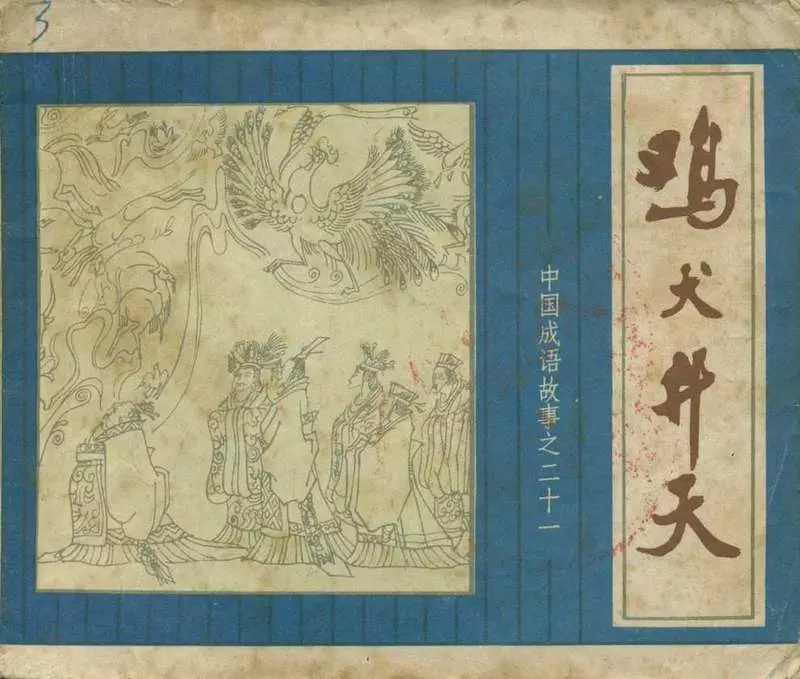 3
鸡犬升天
中国成语故事之二十一